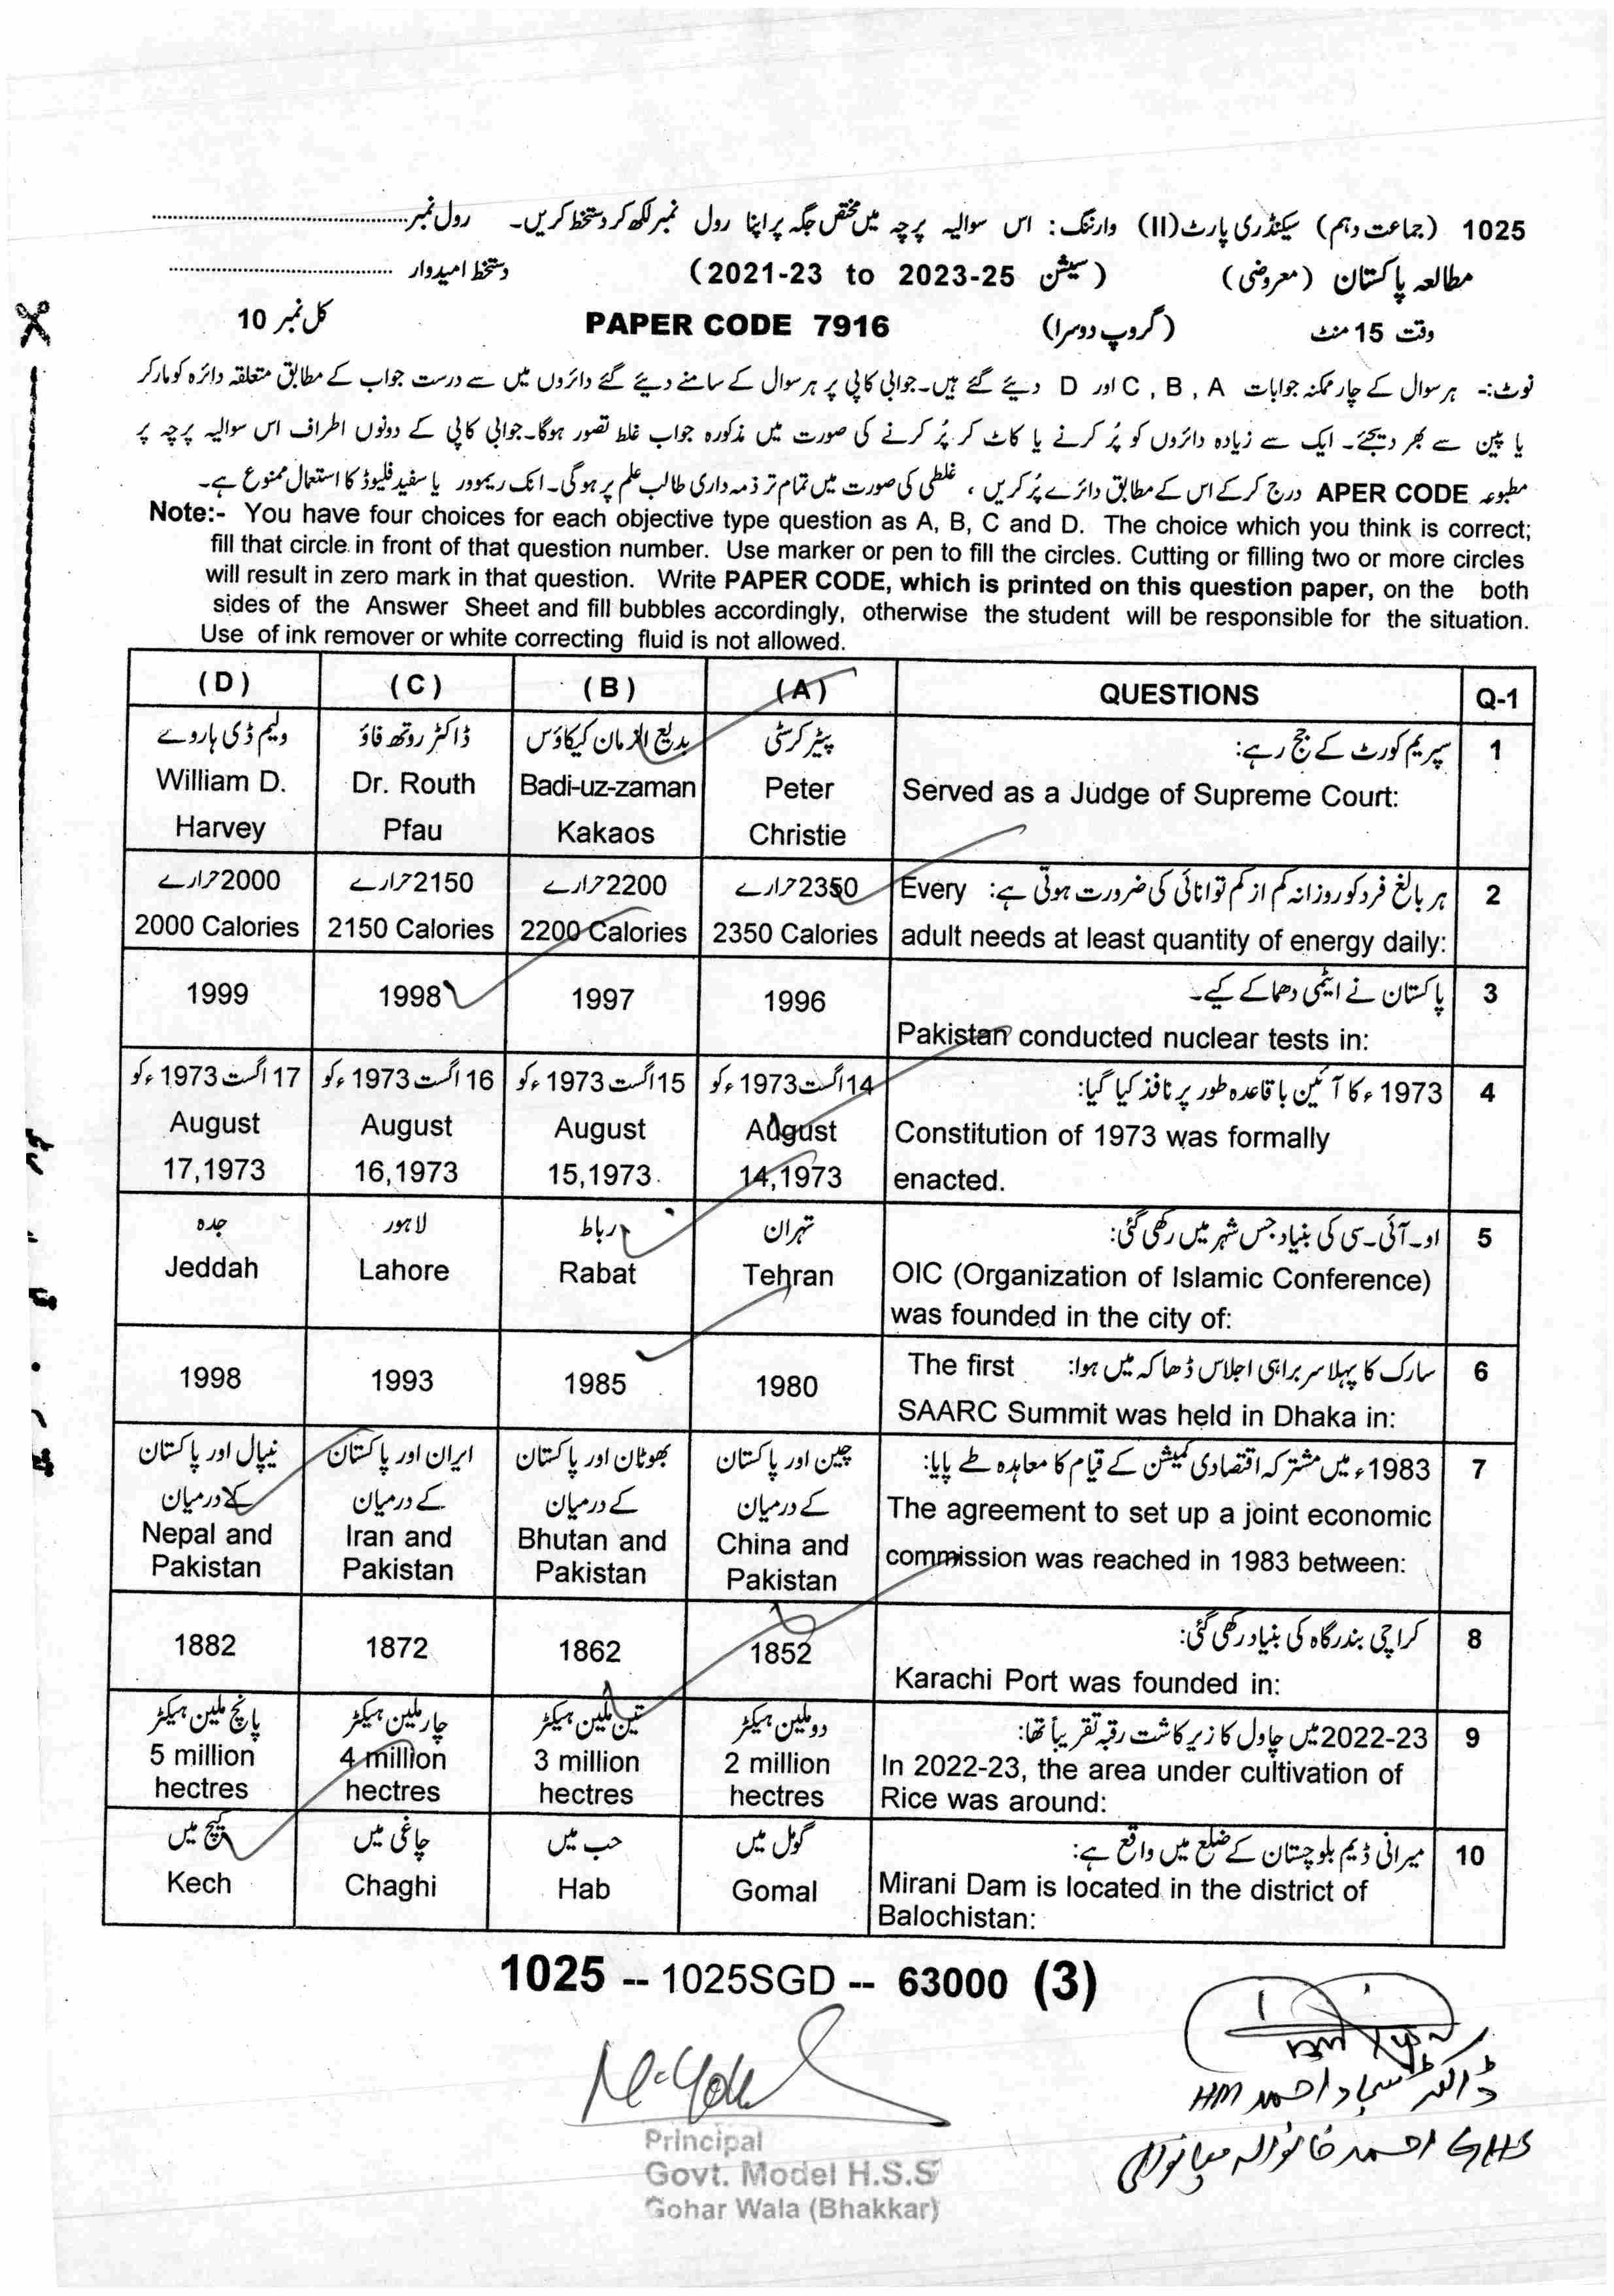 1025 (جماعت دہم) سیکنڈری پارٹ(II) وارننگ: اس سوالیہ پرچہ میں مختص جگہ پر اپنا رول نمبر لکھ کر دستخط کریں۔ رول نمبر
مطالعہ پاکستان (معروضی) (سیشن 2021-23 to 2023-25) دستخط امیدوار
وقت 15 منٹ (گروپ دوسرا) PAPER CODE 7916 کل نمبر 10
نوٹ:- ہر سوال کے چار ممکنہ جوابات A , B , C اور D دیئے گئے ہیں۔ جوابی کاپی پر ہر سوال کے سامنے دیئے گئے دائروں میں سے درست جواب کے مطابق متعلقہ دائرہ کو مارکر
یا پین سے بھر دیجئے۔ ایک سے زیادہ دائروں کو پُر کرنے یا کاٹ کر پُر کرنے کی صورت میں مذکورہ جواب غلط تصور ہوگا۔ جوابی کاپی کے دونوں اطراف اس سوالیہ پرچہ پر
مطبوعہ APER CODE درج کر کے اس کے مطابق دائرے پُر کریں، غلطی کی صورت میں تمام تر ذمہ داری طالب علم پر ہوگی۔ انک ریموور یا سفید فلیوڈ کا استعمال ممنوع ہے۔
Note:- You have four choices for each objective type question as A, B, C and D. The choice which you think is correct;
fill that circle in front of that question number. Use marker or pen to fill the circles. Cutting or filling two or more circles
will result in zero mark in that question. Write PAPER CODE, which is printed on this question paper, on the both
sides of the Answer Sheet and fill bubbles accordingly, otherwise the student will be responsible for the situation.
Use of ink remover or white correcting fluid is not allowed.
(D) (C) (B) (A) QUESTIONS Q-1
1 سپریم کورٹ کے جج رہے: پیٹر کرسٹی بدیع الزمان کیکاؤس ڈاکٹر روتھ فاؤ ولیم ڈی ہاروے
William D. Dr. Routh Badi-uz-zaman Peter Served as a Judge of Supreme Court:
Harvey Pfau Kakaos Christie
2 ہر بالغ فرد کو روزانہ کم از کم توانائی کی ضرورت ہوتی ہے: Every 2350 حرارے 2200 حرارے 2150 حرارے 2000 حرارے
2000 Calories 2150 Calories 2200 Calories 2350 Calories adult needs at least quantity of energy daily:
3 پاکستان نے ایٹمی دھماکے کیے۔
1999 1998 1997 1996
Pakistan conducted nuclear tests in:
4 1973ء کا آئین باقاعدہ طور پر نافذ کیا گیا: 14 اگست 1973ء کو 15 اگست 1973ء کو 16 اگست 1973ء کو 17 اگست 1973ء کو
August August August August Constitution of 1973 was formally
17,1973 16,1973 15,1973 14,1973 enacted.
5 او۔آئی۔سی کی بنیاد جس شہر میں رکھی گئی: تہران رباط لاہور جدہ
Jeddah Lahore Rabat Tehran OIC (Organization of Islamic Conference)
was founded in the city of:
6 سارک کا پہلا سربراہی اجلاس ڈھاکہ میں ہوا: The first
1998 1993 1985 1980
SAARC Summit was held in Dhaka in:
7 1983ء میں مشترکہ اقتصادی کمیشن کے قیام کا معاہدہ طے پایا: چین اور پاکستان بھوٹان اور پاکستان ایران اور پاکستان نیپال اور پاکستان
کے درمیان کے درمیان کے درمیان کے درمیان
Nepal and Iran and Bhutan and China and The agreement to set up a joint economic
Pakistan Pakistan Pakistan Pakistan commission was reached in 1983 between:
8 کراچی بندرگاہ کی بنیاد رکھی گئی:
1882 1872 1862 1852
Karachi Port was founded in:
9 2022-23 میں چاول کا زیر کاشت رقبہ تقریباً تھا: دو ملین ہیکٹر تین ملین ہیکٹر چار ملین ہیکٹر پانچ ملین ہیکٹر
5 million 4 million 3 million 2 million In 2022-23, the area under cultivation of
hectres hectres hectres hectres Rice was around:
10 میرانی ڈیم بلوچستان کے ضلع میں واقع ہے: گومل میں حب میں چاغی میں کیچ میں
Kech Chaghi Hab Gomal Mirani Dam is located in the district of
Balochistan:
1025 -- 1025SGD -- 63000 (3)
ڈاکٹر سجاد احمد HM
GHS احمد خانوالہ میانوالی
Principal
Govt. Model H.S.S
Gohar Wala (Bhakkar)